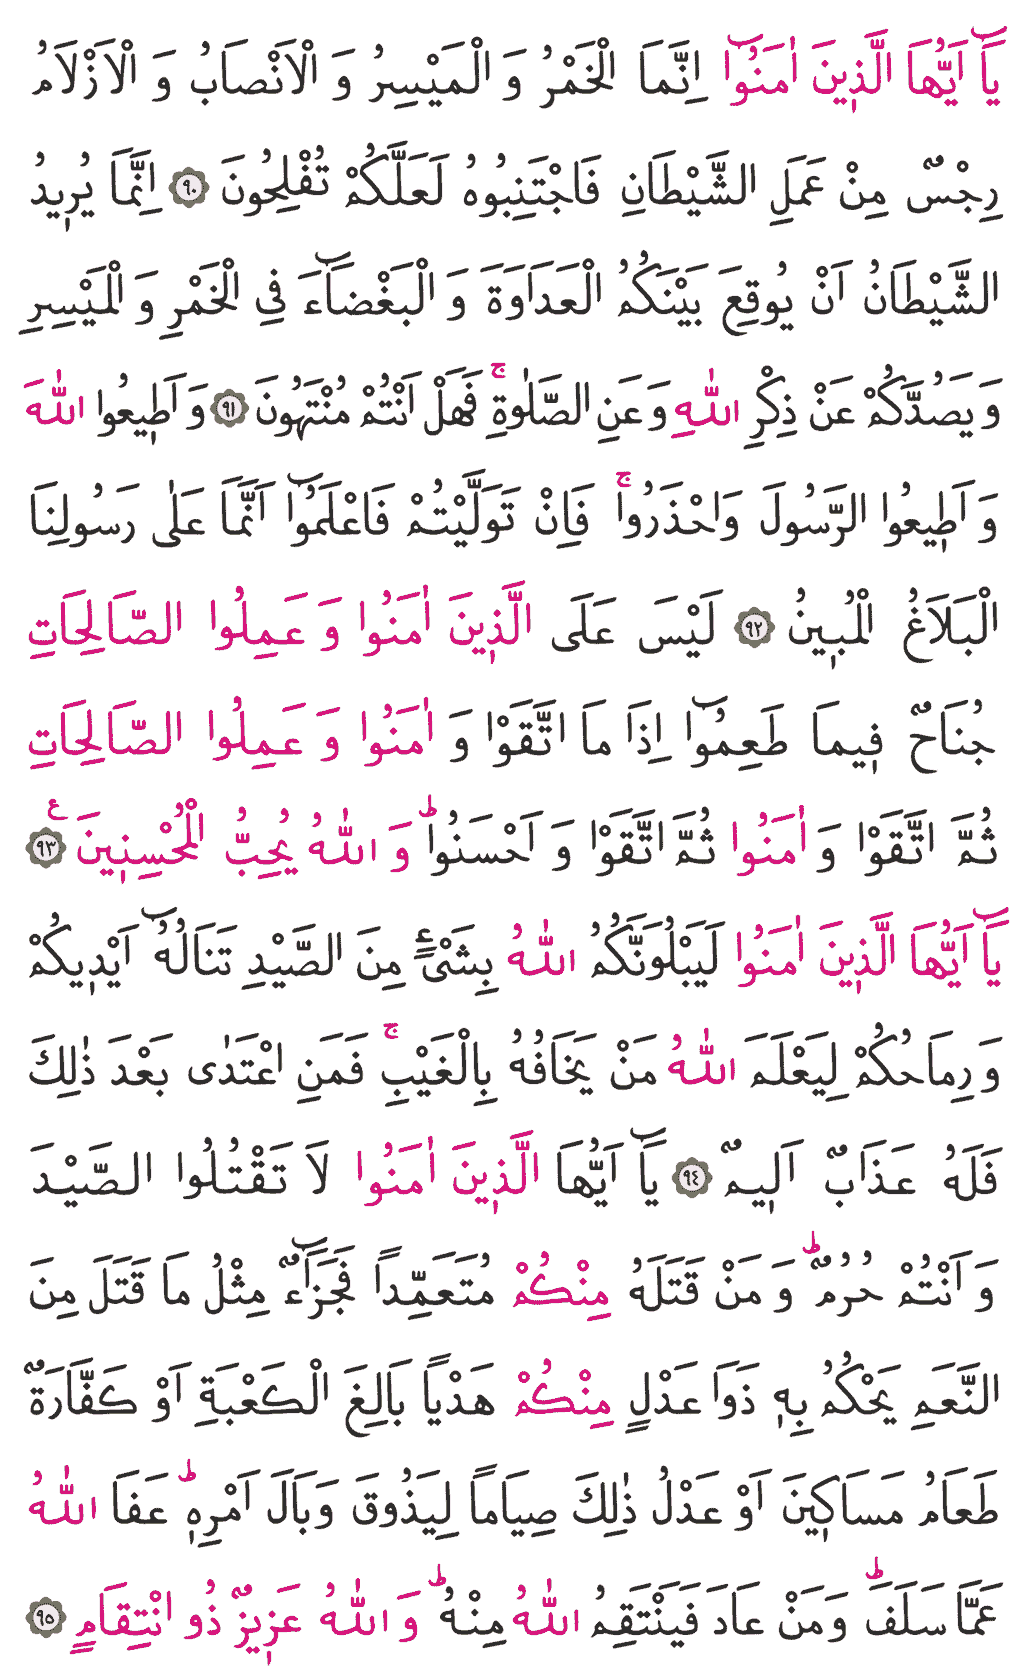 يَٓا اَيُّهَا الَّذ۪ينَ اٰمَنُٓوا اِنَّمَا الْخَمْرُ وَ الْمَيْسِرُ وَ الْاَنْصَابُ وَ الْاَزْلَامُ
رِجْسٌ مِنْ عَمَلِ الشَّيْطَانِ فَاجْتَنِبُوهُ لَعَلَّكُمْ تُفْلِحُونَ ﴿٩٠﴾ اِنَّمَا يُر۪يدُ
الشَّيْطَانُ اَنْ يُوقِعَ بَيْنَكُمُ الْعَدَاوَةَ وَ الْبَغْضَٓاءَ فِي الْخَمْرِ وَ الْمَيْسِرِ
وَ يَصُدَّكُمْ عَنْ ذِكْرِ اللّٰهِ وَ عَنِ الصَّلٰوةِۚ فَهَلْ اَنْتُمْ مُنْتَهُونَ ﴿٩١﴾ وَ اَط۪يعُوا اللّٰهَ
وَ اَط۪يعُوا الرَّسُولَ وَ احْذَرُواۚ فَاِنْ تَوَلَّيْتُمْ فَاعْلَمُٓوا اَنَّمَا عَلٰى رَسُولِنَا
الْبَلَاغُ الْمُب۪ينُ ﴿٩٢﴾ لَيْسَ عَلَى الَّذ۪ينَ اٰمَنُوا وَ عَمِلُوا الصَّالِحَاتِ
جُنَاحٌ ف۪يمَا طَعِمُٓوا اِذَا مَا اتَّقَوْا وَ اٰمَنُوا وَ عَمِلُوا الصَّالِحَاتِ
ثُمَّ اتَّقَوْا وَ اٰمَنُوا ثُمَّ اتَّقَوْا وَ اَحْسَنُواۜ وَ اللّٰهُ يُحِبُّ الْمُحْسِن۪ينَ ع ﴿٩٣﴾
يَٓا اَيُّهَا الَّذ۪ينَ اٰمَنُوا لَيَبْلُوَنَّكُمُ اللّٰهُ بِشَيْءٍ مِنَ الصَّيْدِ تَنَالُهُٓ اَيْد۪يكُمْ
وَ رِمَاحُكُمْ لِيَعْلَمَ اللّٰهُ مَنْ يَخَافُهُ بِالْغَيْبِۚ فَمَنِ اعْتَدٰى بَعْدَ ذٰلِكَ
فَلَهُ عَذَابٌ اَل۪يمٌ ﴿٩٤﴾ يَٓا اَيُّهَا الَّذ۪ينَ اٰمَنُوا لَا تَقْتُلُوا الصَّيْدَ
وَ اَنْتُمْ حُرُمٌۜ وَ مَنْ قَتَلَهُ مِنْكُمْ مُتَعَمِّدًا فَجَزَٓاءٌ مِثْلُ مَا قَتَلَ مِنَ
النَّعَمِ يَحْكُمُ بِه۪ ذَوَا عَدْلٍ مِنْكُمْ هَدْيًا بَالِغَ الْكَعْبَةِ اَوْ كَفَّارَةٌ
طَعَامُ مَسَاك۪ينَ اَوْ عَدْلُ ذٰلِكَ صِيَامًا لِيَذُوقَ وَبَالَ اَمْرِه۪ۜ عَفَا اللّٰهُ
عَمَّا سَلَفَۜ وَ مَنْ عَادَ فَيَنْتَقِمُ اللّٰهُ مِنْهُۜ وَ اللّٰهُ عَز۪يزٌ ذُو انْتِقَامٍ ﴿٩٥﴾